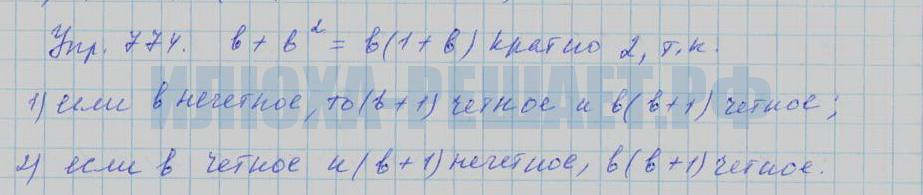 Упр. 774. в + в² = в(1 + в) кратно 2, т.к.
ИЛЮХА-РЕШАЕТ.РФ
1) если в нечетное, то (в + 1) четное и в(в+1) четное;
2) если в четное и (в + 1) нечетное, в(в+1) четное.